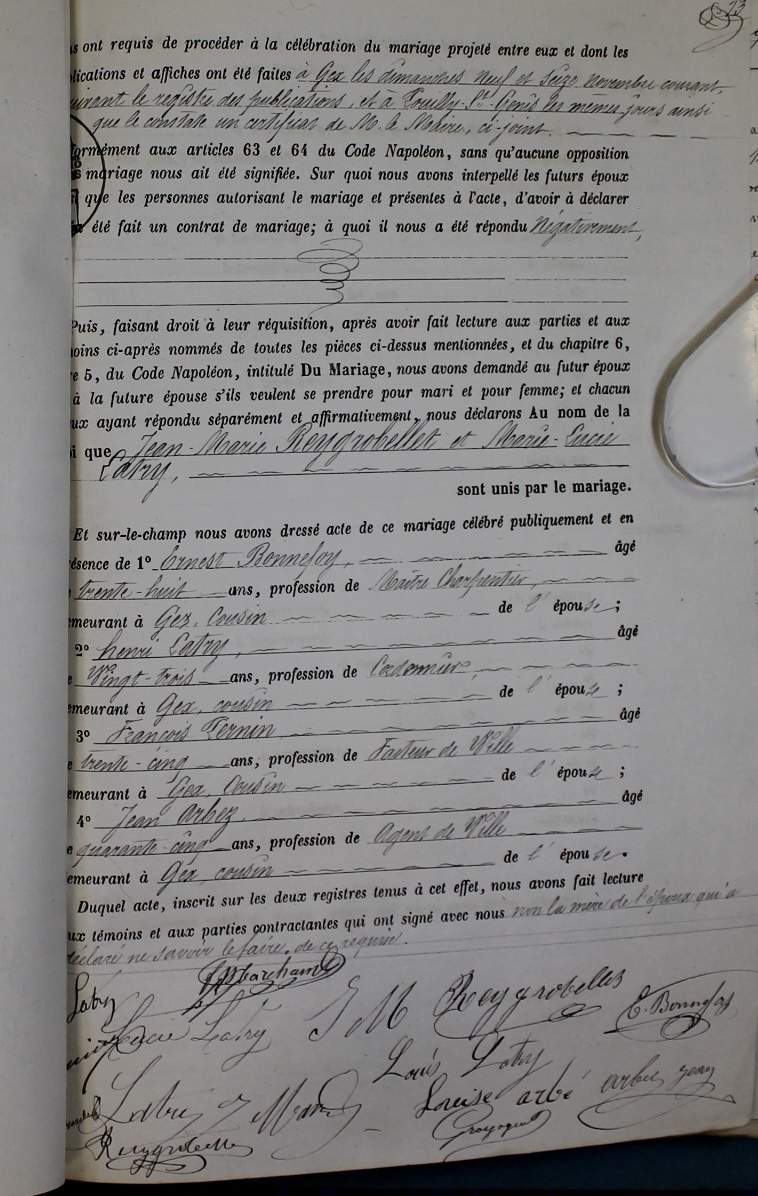 s ont requis de procéder à la célébration du mariage projeté entre eux et dont les
lications et affiches ont été faites à Gex les dimanches neuf et seize novembre courant,
uivant le registre des publications, et à Pouilly-St-Genis les mêmes jours ainsi
que le constate un certificat de M. le Maire, ci-joint.
formément aux articles 63 et 64 du Code Napoléon, sans qu'aucune opposition
mariage nous ait été signifiée. Sur quoi nous avons interpellé les futurs époux
que les personnes autorisant le mariage et présentes à l'acte, d'avoir à déclarer
été fait un contrat de mariage; à quoi il nous a été répondu Négativement,
Puis, faisant droit à leur réquisition, après avoir fait lecture aux parties et aux
oins ci-après nommés de toutes les pièces ci-dessus mentionnées, et du chapitre 6,
e 5, du Code Napoléon, intitulé Du Mariage, nous avons demandé au futur époux
à la future épouse s'ils veulent se prendre pour mari et pour femme; et chacun
ux ayant répondu séparément et affirmativement, nous déclarons Au nom de la
i que Jean-Marie Reygrobellet et Marie-Lucie
Latry,
sont unis par le mariage.
Et sur-le-champ nous avons dressé acte de ce mariage célébré publiquement et en
ésence de 1° Ernest Bonnefoy, âgé
trente-huit ans, profession de Maître Charpentier,
meurant à Gex, Cousin de l'épouse;
2° henri Latry, âgé
e Vingt-trois ans, profession de Cordonnier,
emeurant à Gex, cousin de l'épouse;
3° François Pernin âgé
e trente-cinq ans, profession de Facteur de Ville
emeurant à Gex, Cousin de l'épouse;
4° Jean Arbez, âgé
e quarante-cinq ans, profession de Agent de Ville
emeurant à Gex, cousin de l'épouse.
Duquel acte, inscrit sur les deux registres tenus à cet effet, nous avons fait lecture
ux témoins et aux parties contractantes qui ont signé avec nous non la mère de l'époux qui a
déclaré ne savoir le faire, de ce requise.
Latry Marchand
Lucie Latry J M Reygrobellet E. Bonnefoy
Louis Latry
Latry Louise arbé arbez jean
Reygrobellet